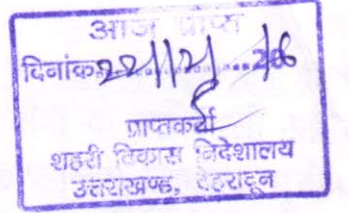 आज प्राप्त
दिनांक
प्राप्तकर्ता
शहरी विकास निदेशालय
उत्तराखण्ड, देहरादून